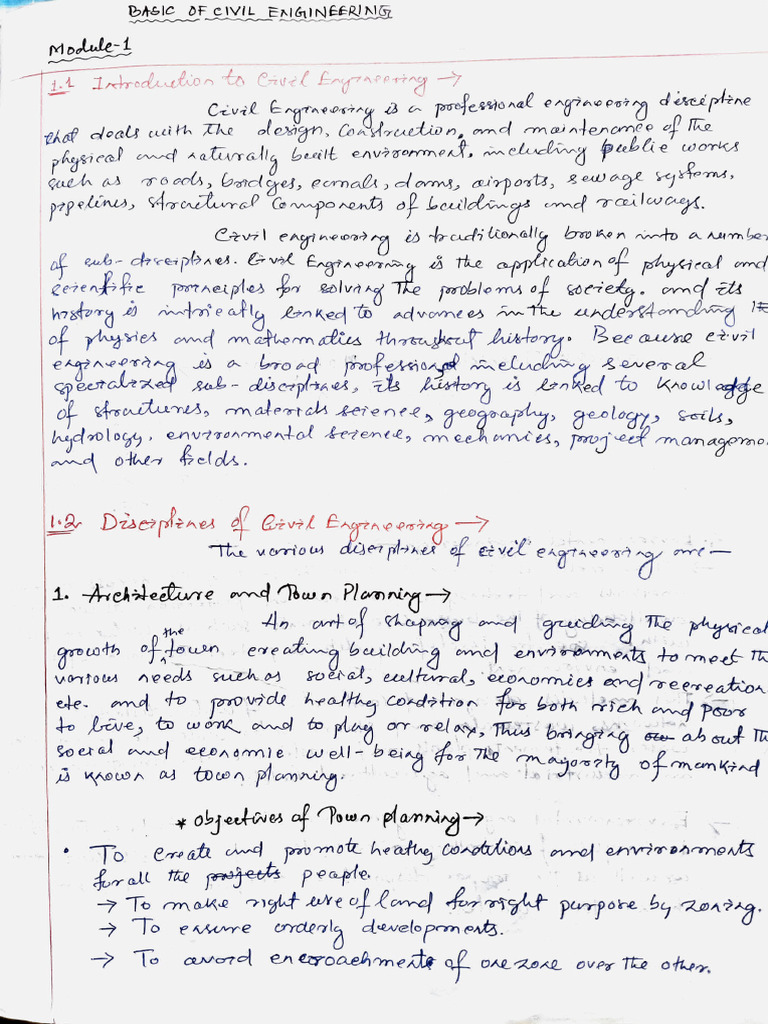 BASIC OF CIVIL ENGINEERING
Module-1
1.1 Introduction to Civil Engineering →
Civil Engineering is a professional engineering discipline
that deals with the design, construction, and maintenance of the
physical and naturally built environment, including public works
such as roads, bridges, canals, dams, airports, sewage systems,
pipelines, structural components of buildings and railways.
Civil engineering is traditionally broken into a number
of sub-disciplines. Civil Engineering is the application of physical and
scientific principles for solving the problems of society. and its
history is intricately linked to advances in the understanding
of physics and mathematics throughout history. Because civil
engineering is a broad profession including several
specialized sub-disciplines, its history is linked to knowladge
of structures, materials science, geography, geology, soils,
hydrology, environmental science, mechanics, project managemen
and other fields.
1.2 Disciplines of Civil Engineering →
The various disciplines of civil engineering are —
1. Architecture and Town Planning →
An art of shaping and guiding the physical
growth of the town creating building and environments to meet th
various needs such as social, cultural, economics and recreation
etc. and to provide healthy condition for both rich and poor
to live, to work and to play or relax, thus bringing about th
social and economic well-being for the majority of mankind
is known as town planning.
* Objectives of Town planning →
• To create and promote heathy conditions and environments
for all the projects people.
→ To make right use of land for right purpose by zoning.
→ To ensure orderly developments.
→ To avoid encroachments of one zone over the other.